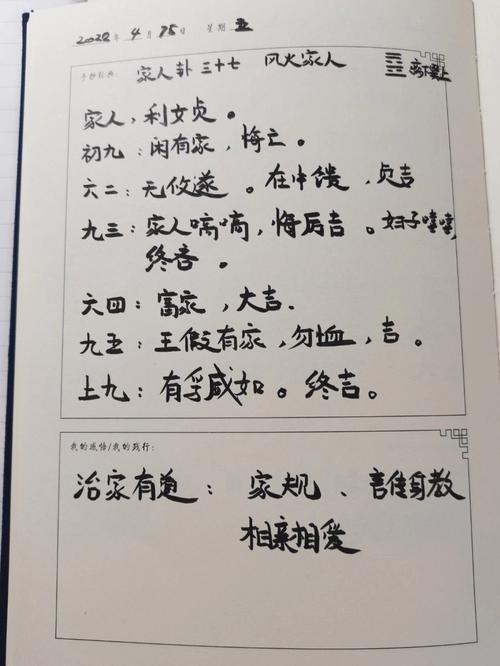 2022年 4月 15日 星期 五
手抄经典: 家人卦 三十七 风火家人 离下巽上
家人，利女贞。
初九：闲有家，悔亡。
六二：无攸遂。在中馈，贞吉
九三：家人嗃嗃，悔厉吉。妇子嘻嘻，
终吝。
六四：富家，大吉.
九五：王假有家，勿恤，吉。
上九：有孚威如。终吉。
我的感悟/我的践行:
治家有道： 家规、言传身教
相亲相爱